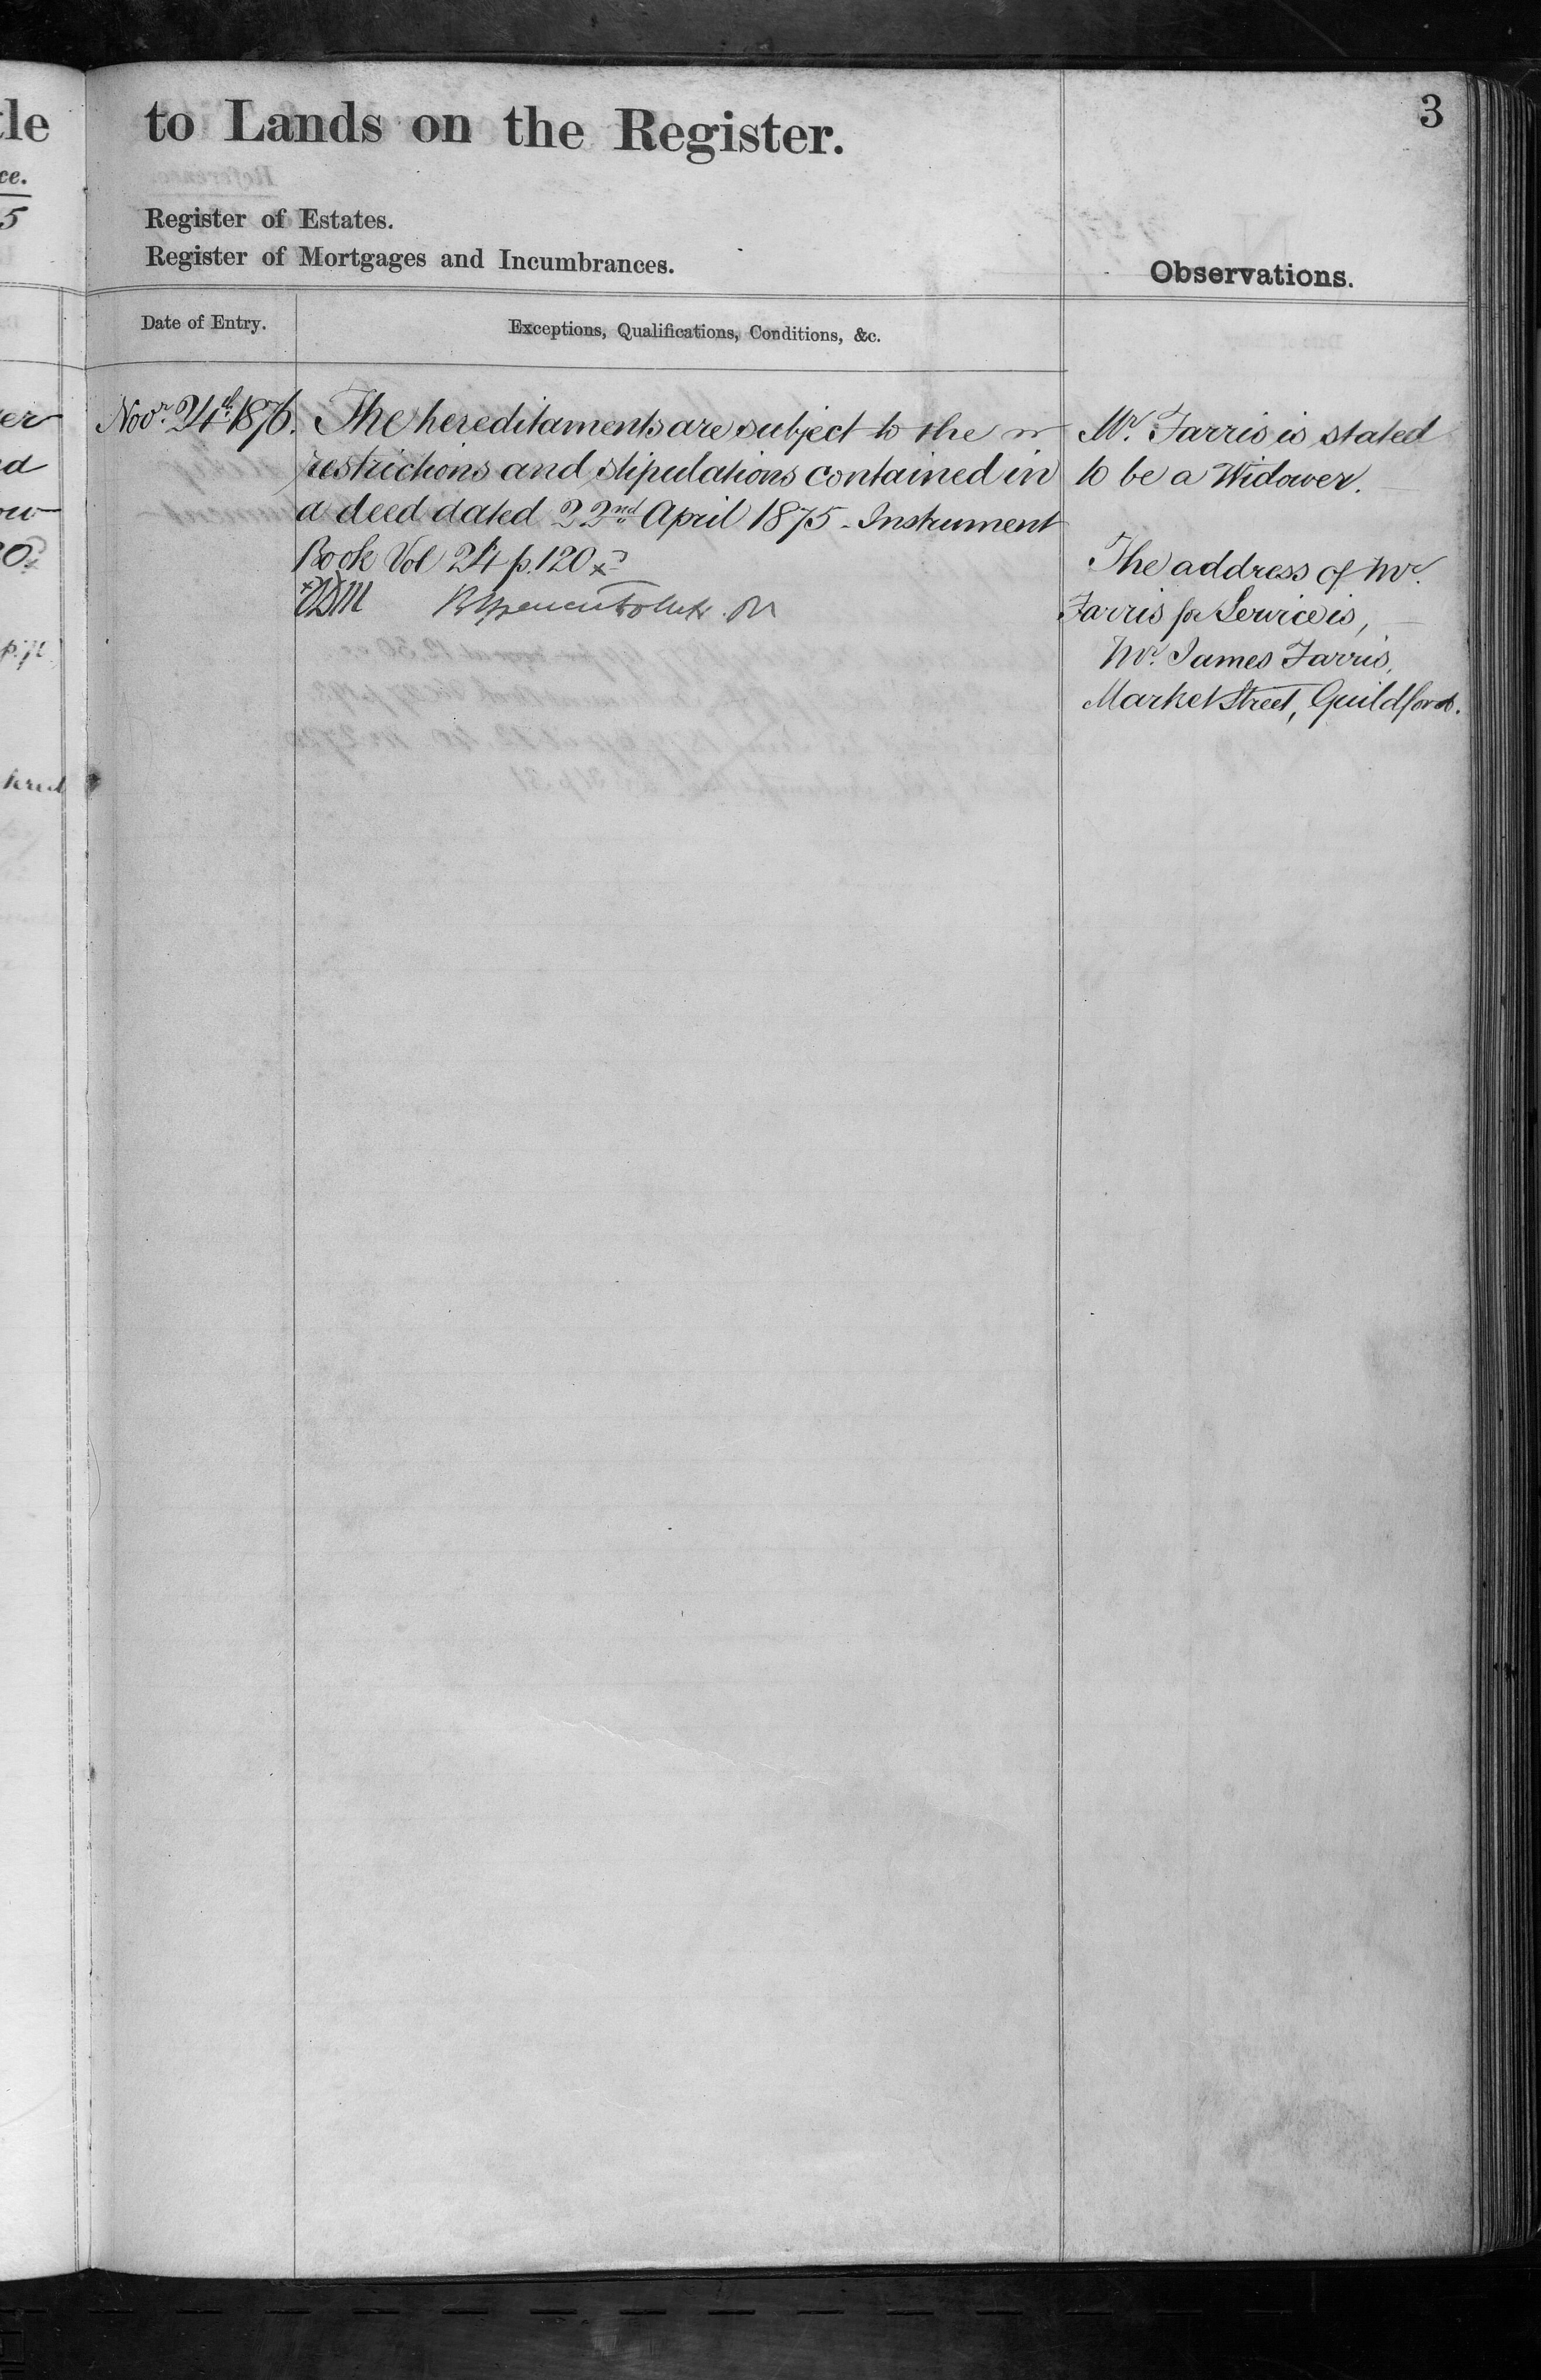 tle
to Lands on the Register.
3
ce.
5
Register of Estates.
Register of Mortgages and Incumbrances.
Observations.
Date of Entry.
Exceptions, Qualifications, Conditions, &c.
Novr. 24th 1876.
The hereditaments are subject to the
restrictions and stipulations contained in
a deed dated 22nd April 1875 - Instrument
Book Vol 24 p. 120 x
Mr. Farris is stated
to be a Widower.
The address of Mr.
Farris for Service is,
Mr. James Farris,
Market Street, Guildford.